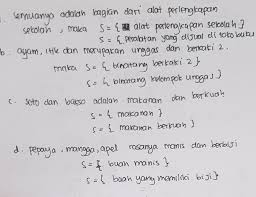 semuanya adalah bagian dari alat perlengkapan
sekolah, maka S = { alat perlengkapan sekolah }
S = { peralatan yang dijual di toko buku
b. Ayam, itik dan merupakan unggas dan berkaki 2.
maka S = { binatang berkaki 2 }
S = { binatang kelompok unggas }
c. Soto dan bakso adalah makanan dan berkuah
S = { makanan }
S = { makanan berkuah }
d. pepaya, mangga, apel rasanya manis dan berbiji
S = { buah manis }
S = { buah yang memiliki biji }